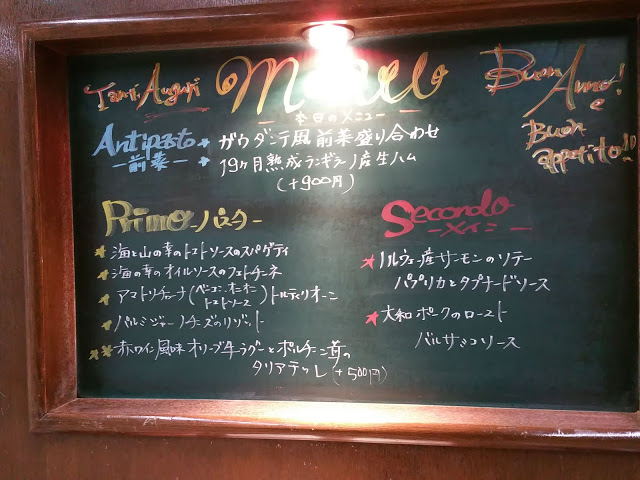 Tanti Auguri
Menu
Buon Anno!
e
Buon appetito!!
本日のメニュー
Antipasto
ー前菜ー
ガウダンテ風前菜盛り合わせ
19ヶ月熟成ランギラーノ産生ハム
(+900円)
Primo ーパスター
海と山の幸のトマトソースのスパゲティ
海の幸のオイルソースのフェトチーネ
アマトリチャーナ(ベーコン、オニオン トマトソース)トルティリオーニ
パルミジャーノチーズのリゾット
赤ワイン風味オリーブ牛ラグーとポルチーニ茸の
タリアテッレ(+500円)
Secondo
ーメインー
ノルウェー産サーモンのソテー
パプリカとタプナードソース
大和ポークのロースト
バルサミコソース